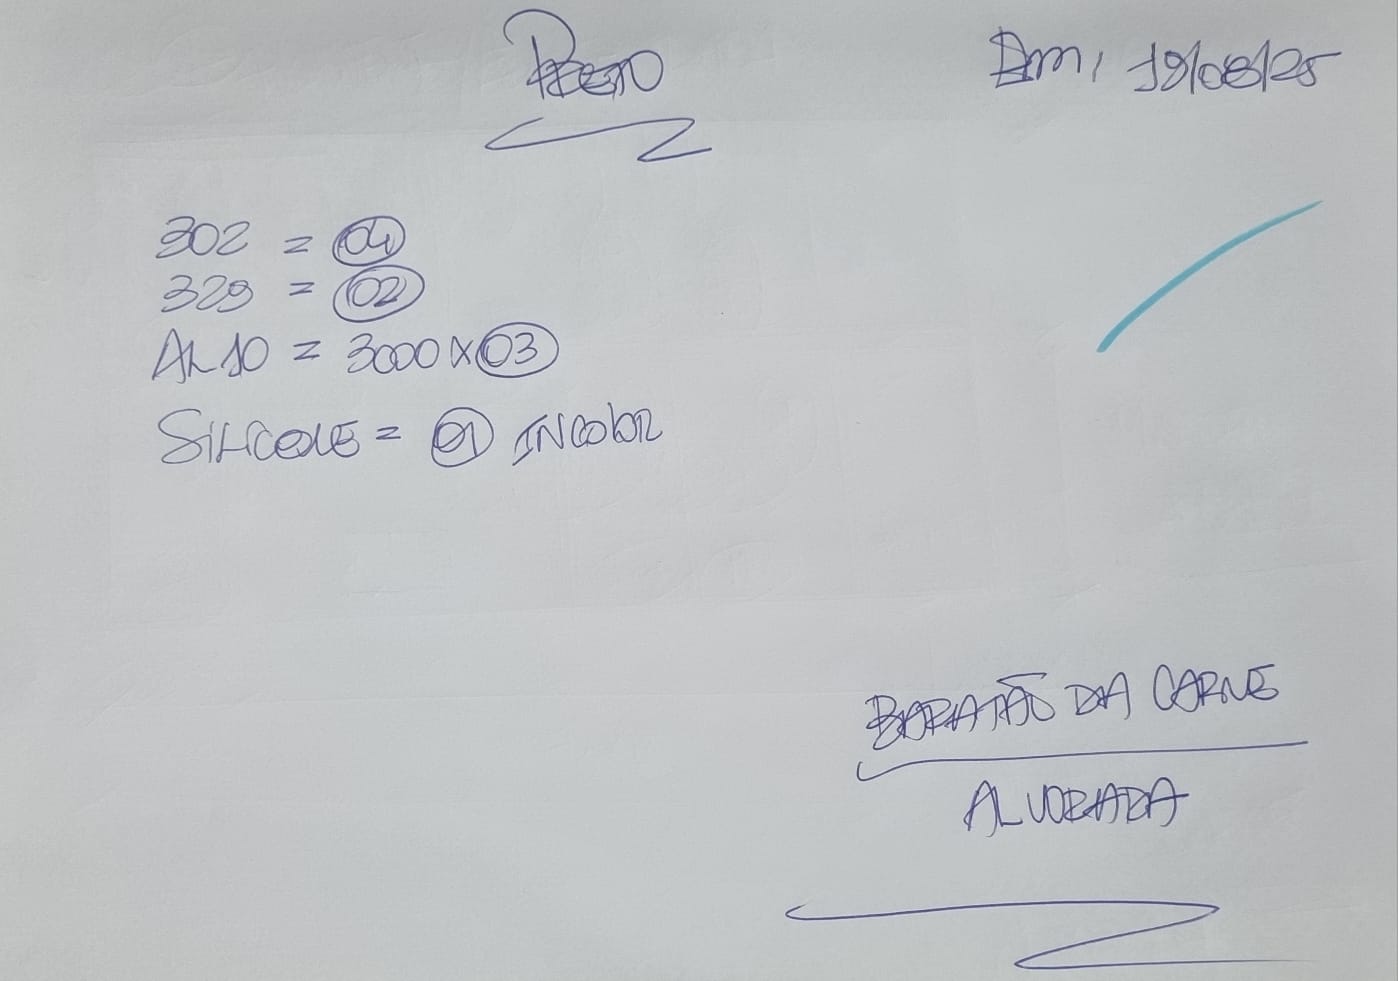 Em, 19/08/25
302 = 04
329 = 02
AL 10 = 3000 x 03
SILICONE = 01 INCOLOR
BARATÃO DA CARNE
ALVORADA